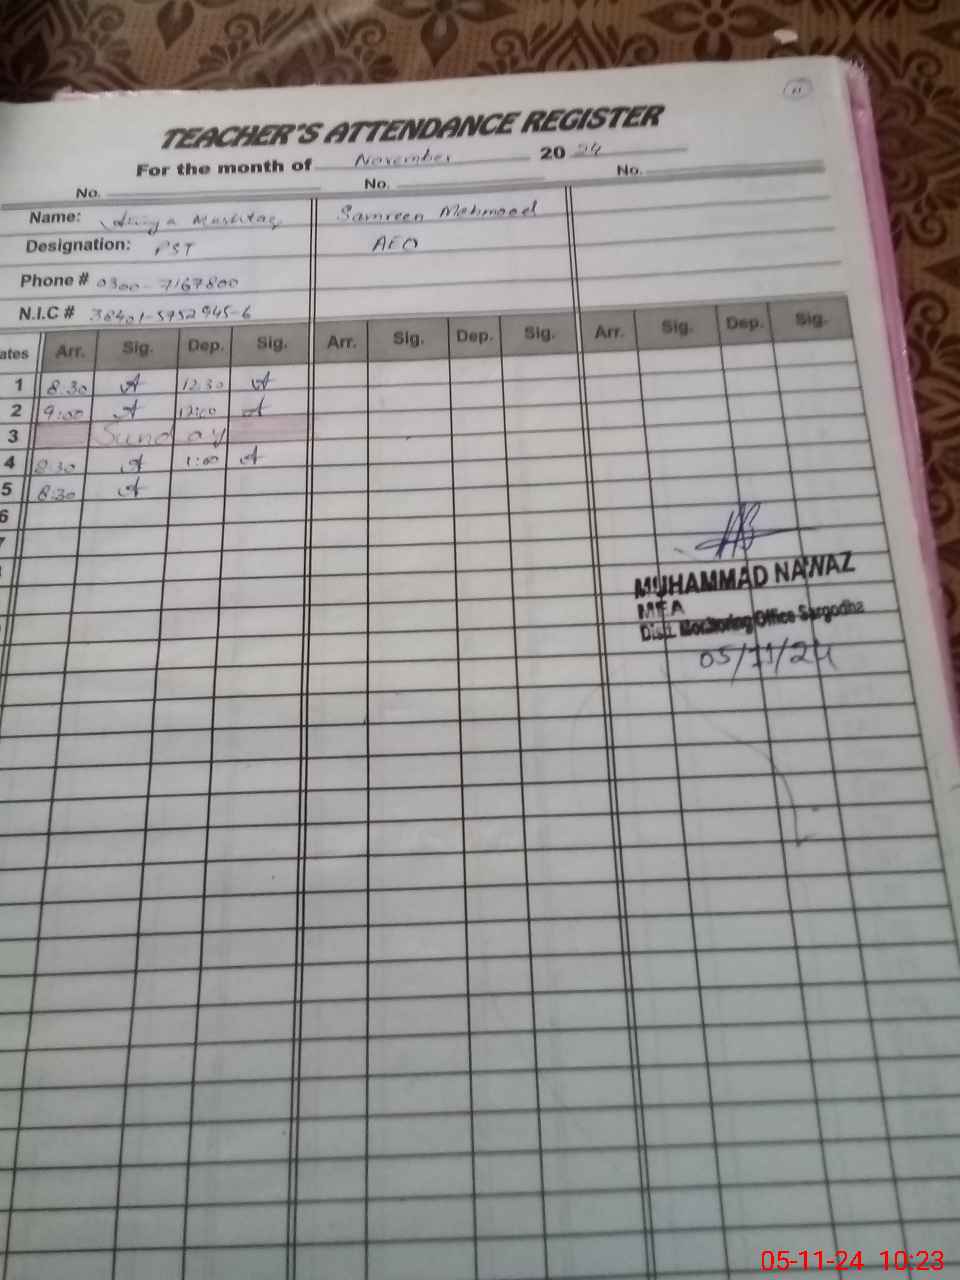 11
TEACHER'S ATTENDANCE REGISTER
For the month of November 2024
No. No. No.
Name: Mushtaq Samreen Mehmood
Designation: PST AEO
Phone # 0300-7167800
N.I.C # 38401-5952945-6
ates Arr. Sig. Dep. Sig. Arr. Sig. Dep. Sig. Arr. Sig. Dep. Sig.
1 8:30 A 12:30 A
2 9:00 A 12:00 A
3 Sunday
4 8:30 A 1:00 A
5 8:30 A
6
7
MUHAMMAD NAWAZ
MEA
Distt. Monitoring Office Sargodha
05/11/24
05-11-24 10:23